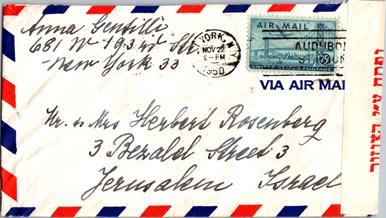 Anna Gentilli
681 W 193rd Str.
New York 33
YORK, N.Y.
NOV 22
2-PM
1950
AIR MAIL
UNITED STATES POSTAGE
AUDUBON
VIA AIR MAIL
Mr. & Mrs Herbert Rosenberg
3 Bezalel Street 3
Jerusalem Israel